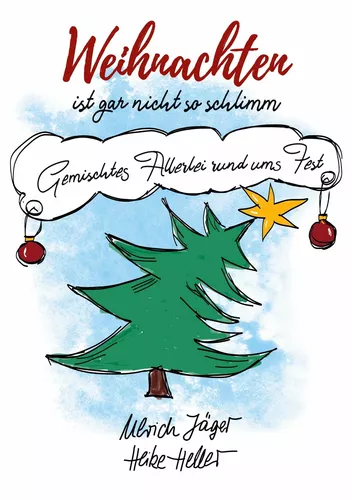 Weihnachten
ist gar nicht so schlimm
Gemischtes Allerlei rund ums Fest
Ulrich Jäger
Heike Heller